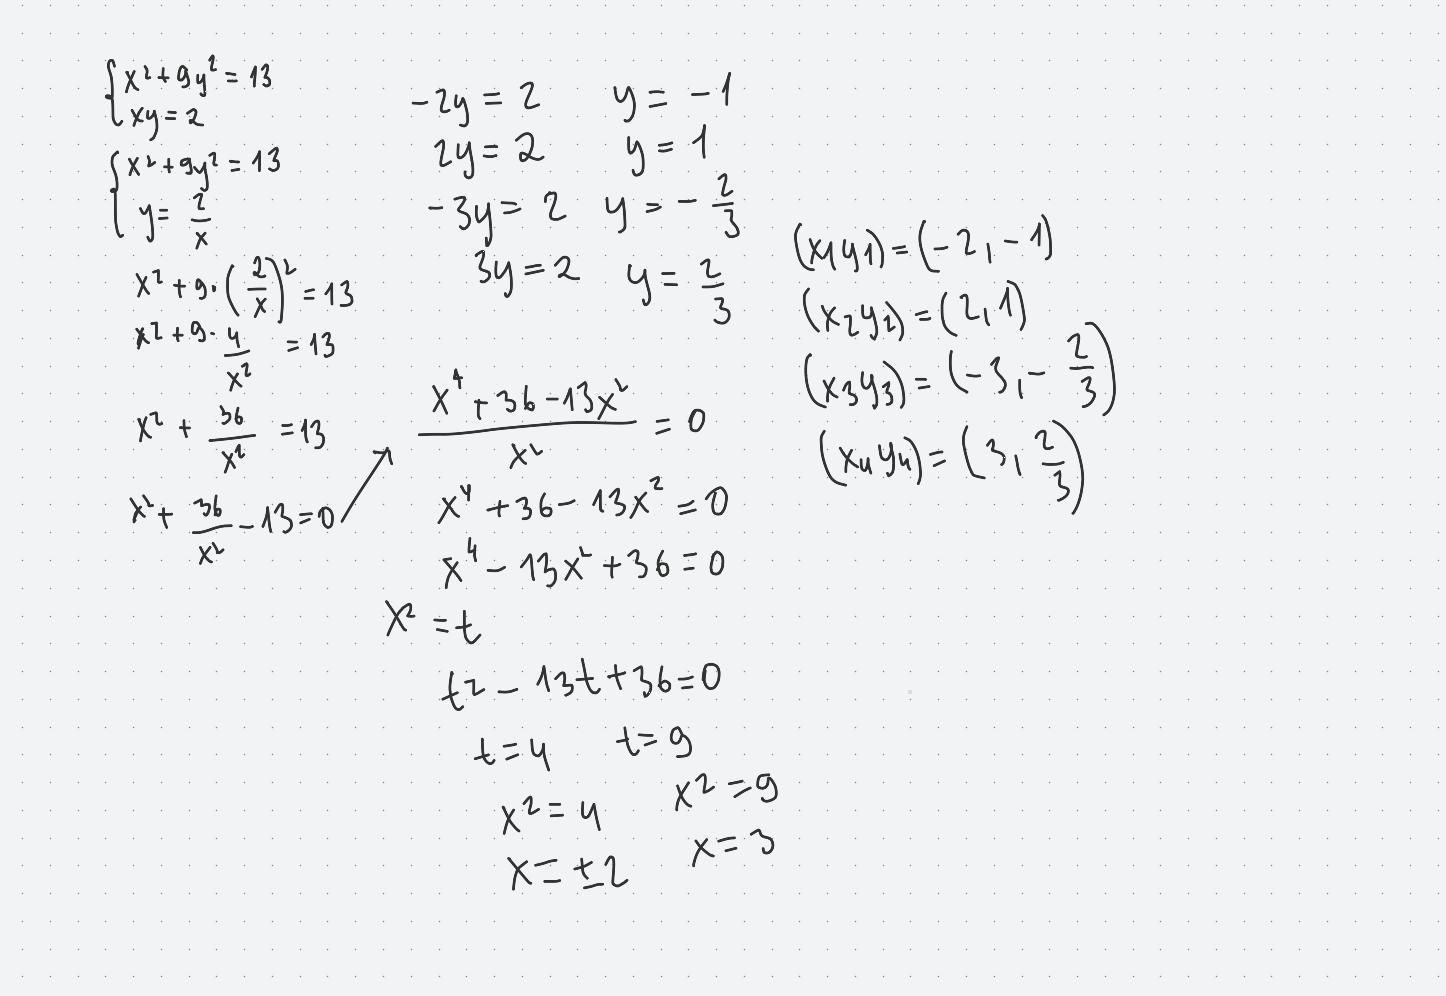 { x² + 9y² = 13
xy = 2
{ x² + 9y² = 13
y = 2/x
x² + 9 · (2/x)² = 13
x² + 9 · 4/x² = 13
x² + 36/x² = 13
x² + 36/x² - 13 = 0
(x⁴ + 36 - 13x²)/x² = 0
x⁴ + 36 - 13x² = 0
x⁴ - 13x² + 36 = 0
x² = t
t² - 13t + 36 = 0
t = 4 t = 9
x² = 4 x² = 9
x = ±2 x = 3
-2y = 2 y = -1
2y = 2 y = 1
-3y = 2 y = -2/3
3y = 2 y = 2/3
(x1y1) = (-2, -1)
(x2y2) = (2, 1)
(x3y3) = (-3, -2/3)
(x4y4) = (3, 2/3)